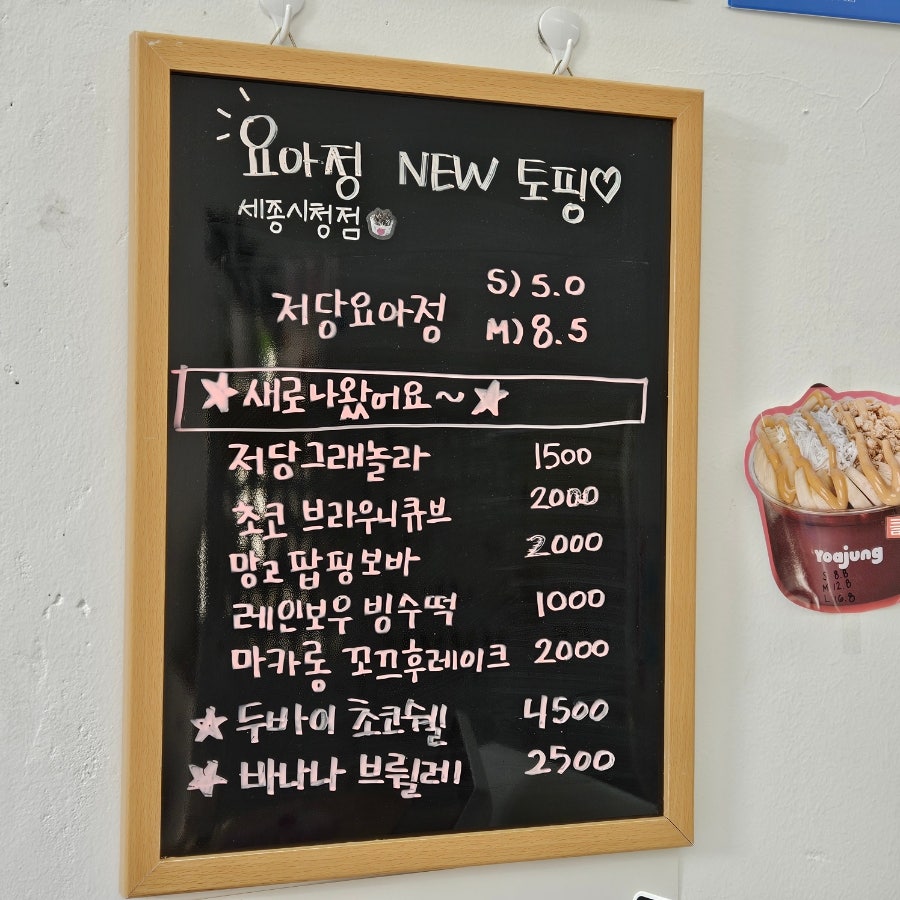 요아정 NEW 토핑♡
세종시청점
저당요아정 S) 5.0
M) 8.5
★새로나왔어요~★
저당그래놀라 1500
초코 브라우니큐브 2000
망고팝핑보바 2000
레인보우 빙수떡 1000
마카롱 꼬끄후레이크 2000
★ 두바이 초코쉘 4500
★ 바나나 브륄레 2500
Yoajung
S 8.8
M 12.8
L 16.8